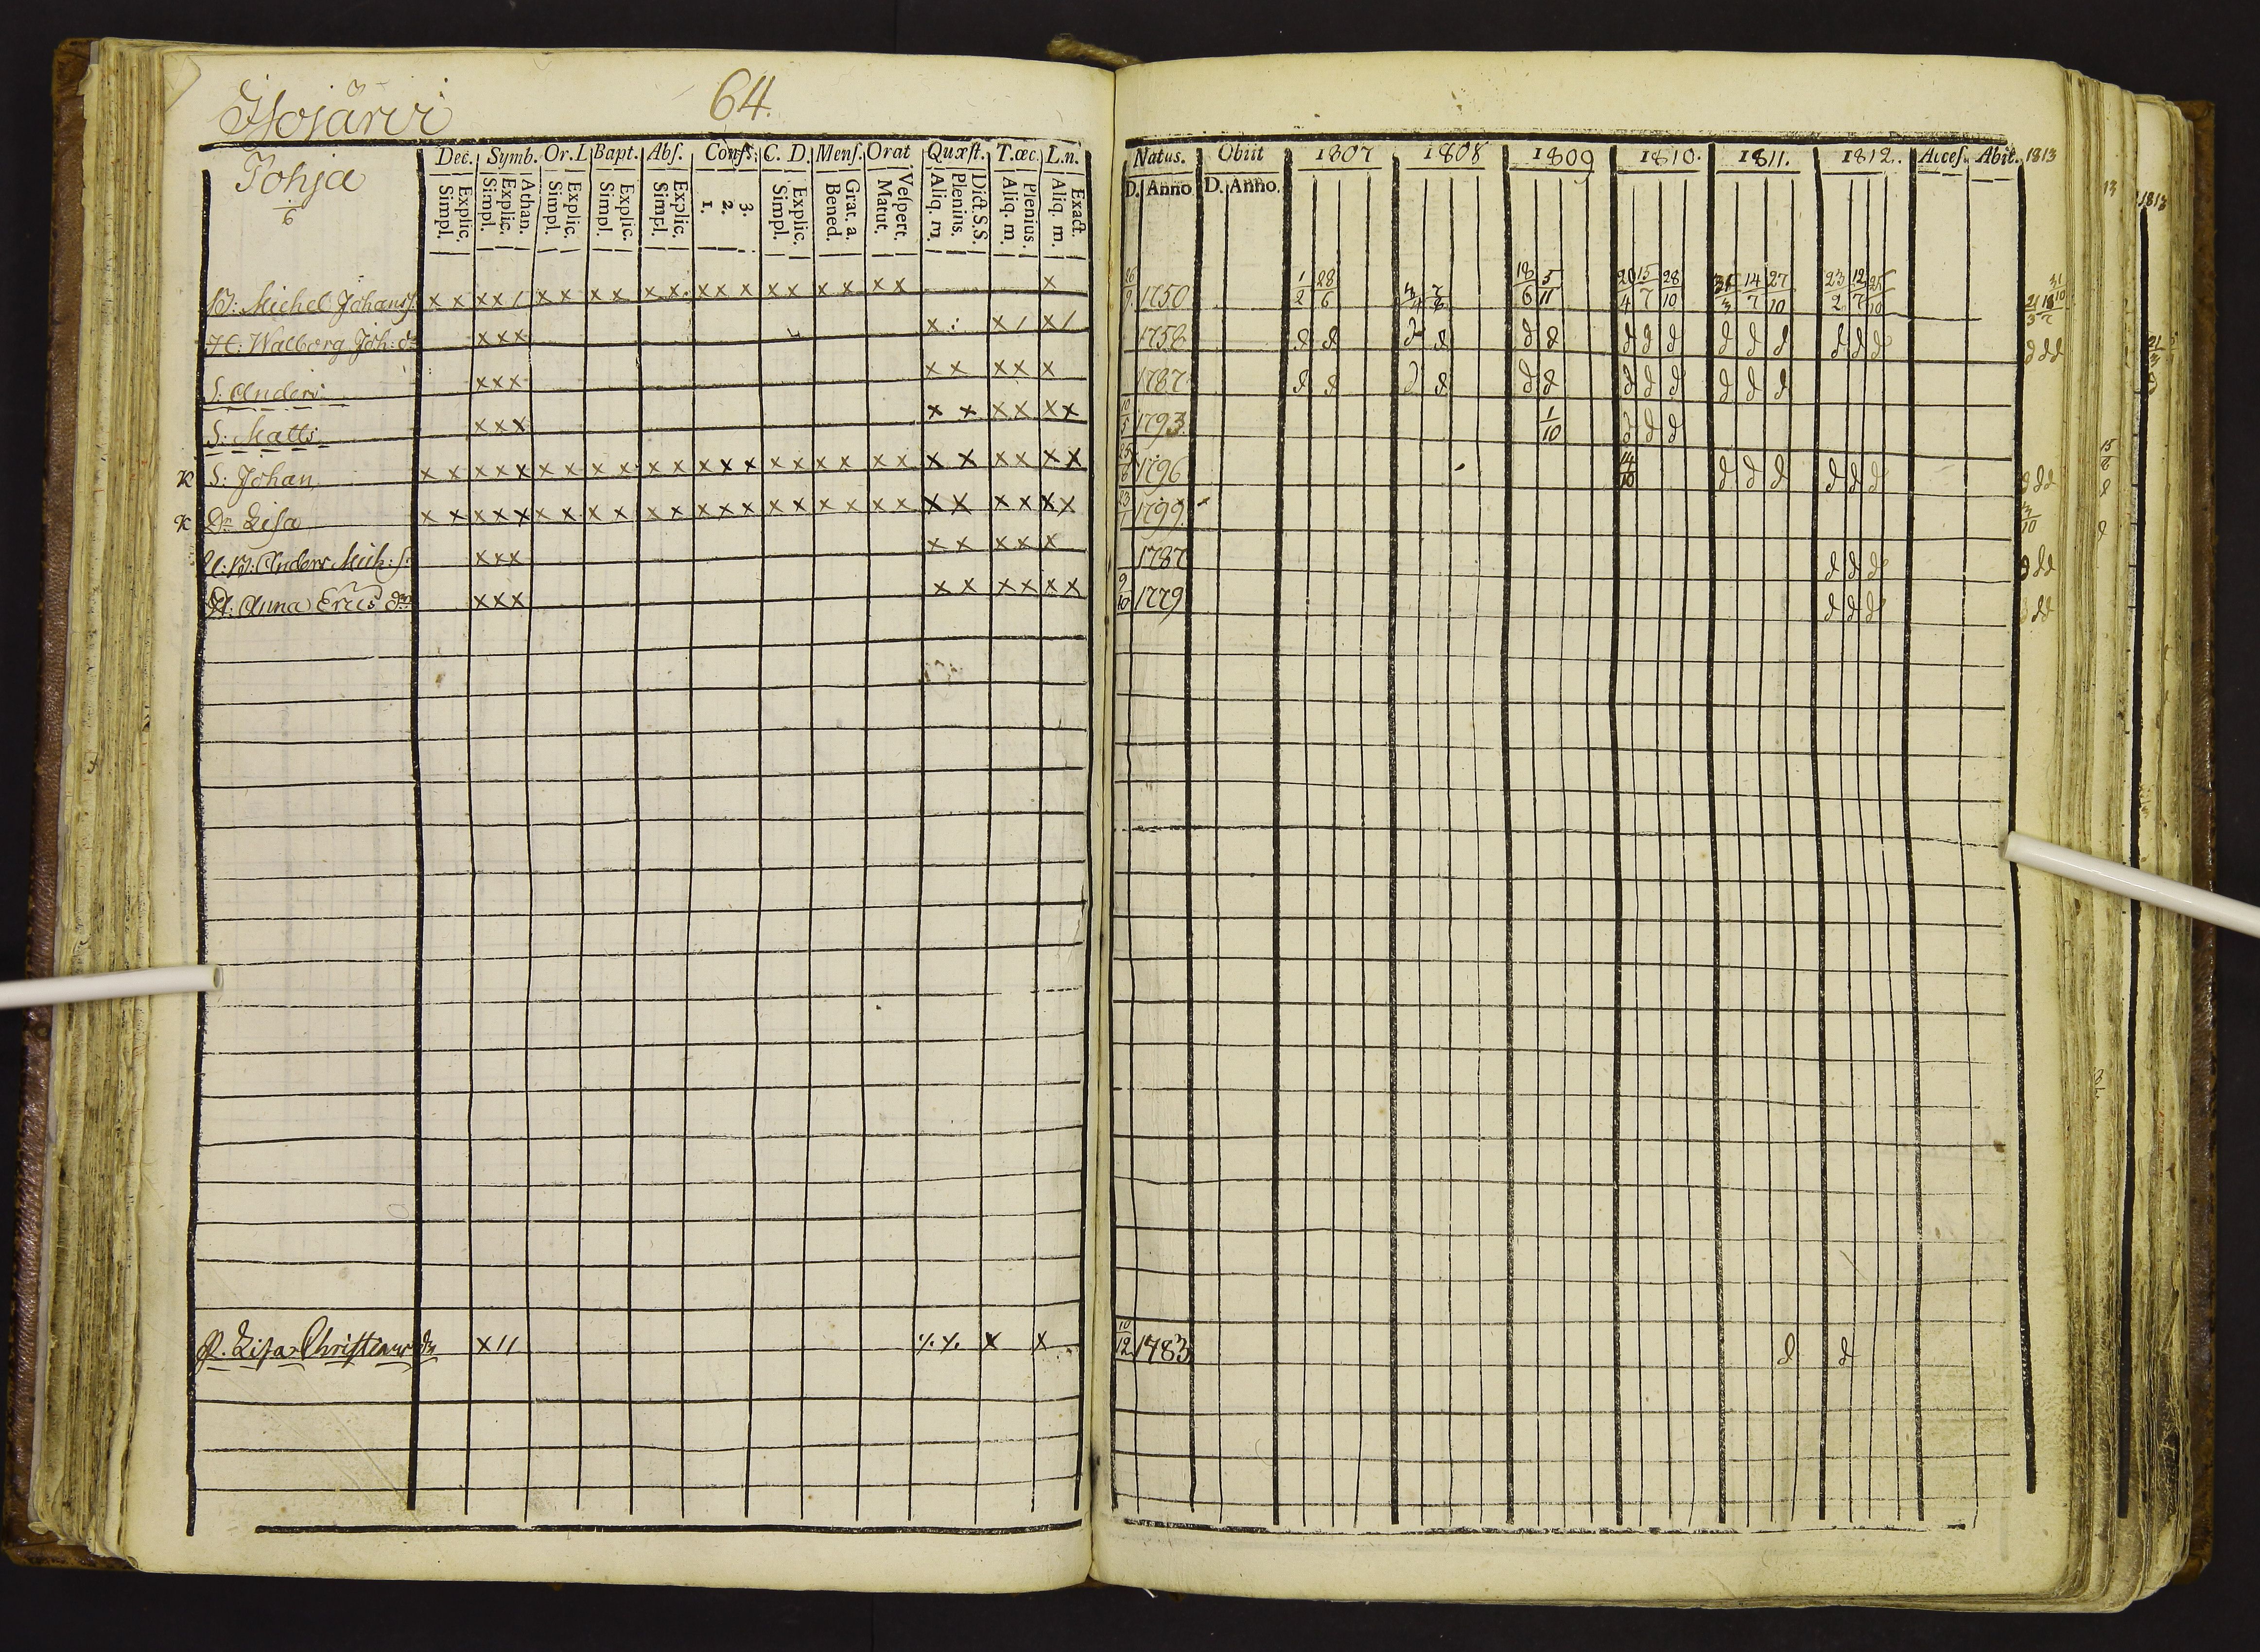 Isojärvi 64.
Pohja
6
Dec. Symb. Or.L Bapt. Abs. Conf. C. D. Mens. Orat Quæst. T.œc. L.n.
Explic. Simpl. Athan. Explic. Simpl. Explic. Simpl. Explic. Simpl. Explic. Simpl. 3. 2. 1. Explic. Simpl. Grat. a. Bened. Vespert. Matut. Dict.S.S. Plenius. Aliq. m. Plenius. Aliq. m. Exact. Aliq. m.
Natus. Obiit 1807 1808 1809 1810. 1811. 1812. Acces. Abit. 1813
D. Anno D. Anno.
B: Michel Johanss. x x x x / x x x x x x x x x x x x x x x x 26/9 1750 1/2 28/6 18/6 5/11 20/4 15/7 28/10 31/3 14/7 27/10 23/2 12/7 25/10 21/3 18/7 31/10
H: Walborg Joh: dr x x x x : x / x / 1758 d d d d d d d d d d d d d d d d d d
S: Anders x x x x x x x x 1787 d d d d d d d d d d d d
S: Matts x x x x x x x x x 10/5 1793 1/10 d d d
K S: Johan x x x x x x x x x x x x x x x x x x x x x x x x x x x 1796 14/10 d d d d d d d d d
K Dr Lisa x x x x x x x x x x x x x x x x x x x x x x x x x x x 23/1 1799 3/10
U: B: Anders Mich: s. x x x x x x x x 1787 d d d d d d
H: Anna Erics dr x x x x x x x x x 9/10 1779 d d d d d d
P. Lisa Christiansdr x / / x x 10/12 1783 d d